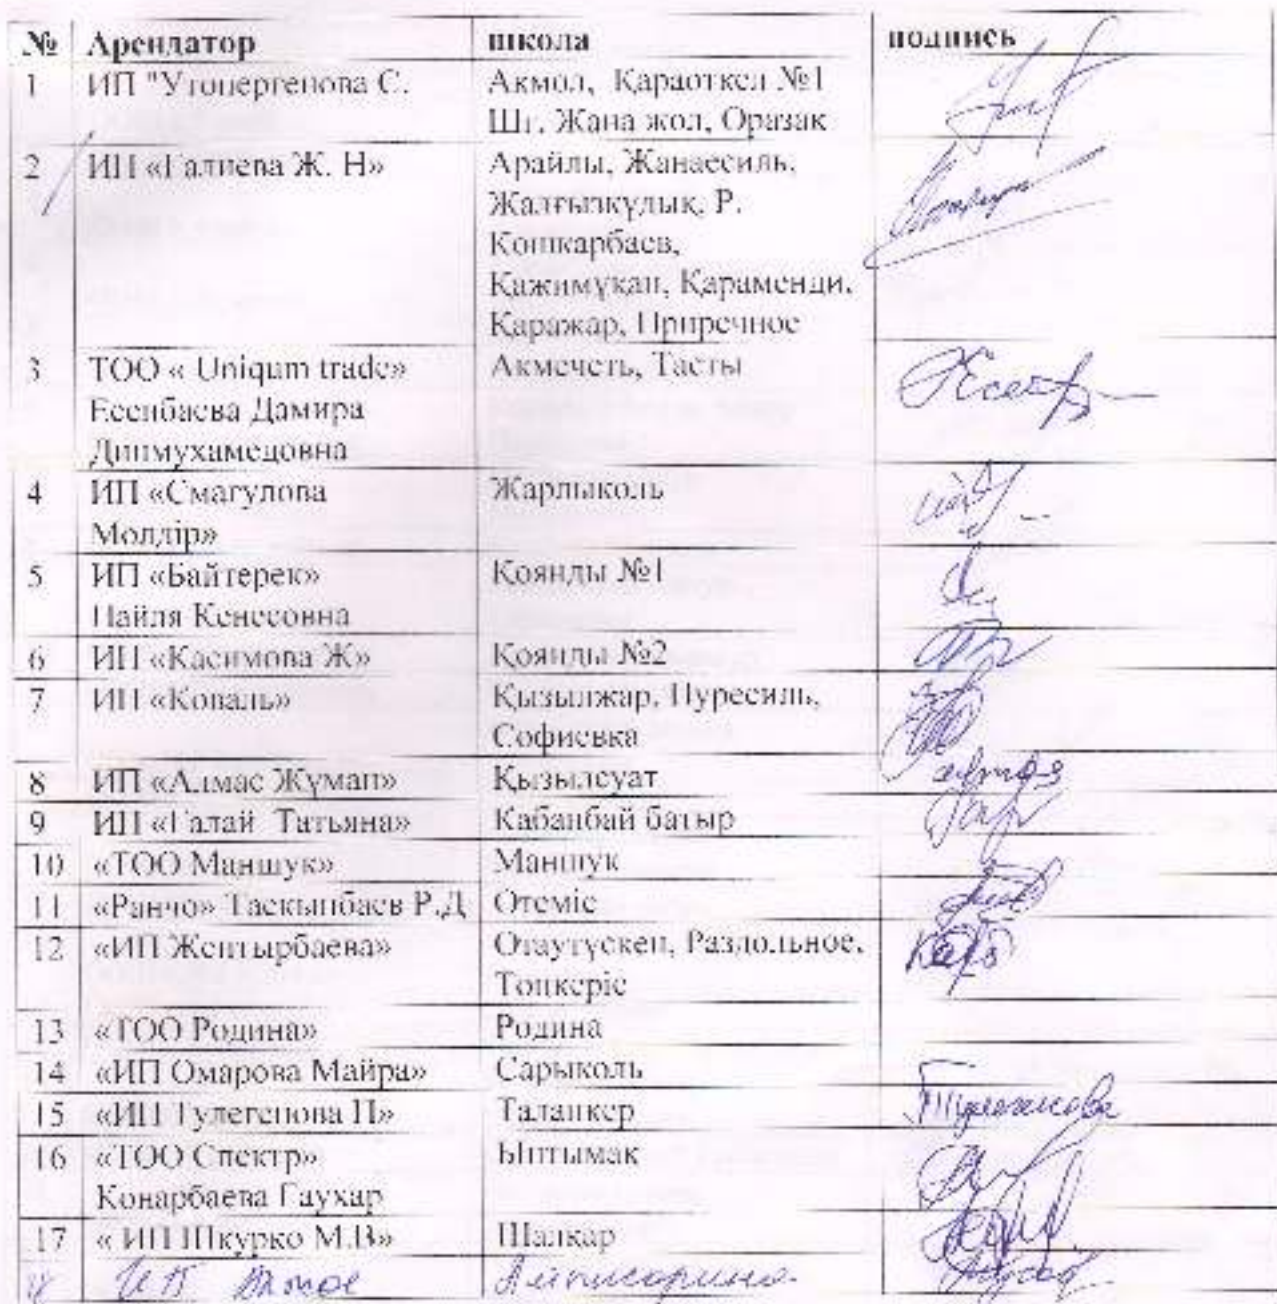 № Арендатор школа подпись
1 ИП "Утопергенова С. Акмол, Қараоткел №1
Шг. Жана жол, Оразак
2 ИП «Галиева Ж. Н» Арайлы, Жанаесиль,
Жалғызқұдық, Р.
Кошкарбаев,
Қажимұкан, Қараменди,
Қаражар, Приречное
3 ТОО « Uniqum trade» Акмечеть, Тасты
Есенбаева Дамира
Динмухамедовна
4 ИП «Смагулова Жарлыколь
Молдір»
5 ИП «Байтерек» Қоянды №1
Найля Кенесовна
6 ИП «Касимова Ж» Қоянды №2
7 ИП «Коваль» Қызылжар, Нуресиль,
Софиевка
8 ИП «Алмас Жұман» Қызылсуат
9 ИП «Галай Татьяна» Кабанбай батыр
10 «ТОО Маншук» Маншук
11 «Ранчо» Таскынбаев Р.Д Отеміс
12 «ИП Жентырбаева» Отаутүскен, Раздольное,
Тонкеріс
13 «ТОО Родина» Родина
14 «ИП Омарова Майра» Сарыколь
15 «ИП Тулегенова П» Талапкер
16 «ТОО Спектр» Ынтымак
Конарбаева Гаухар
17 « ИП Шкурко М.В» Шалкар
ИП